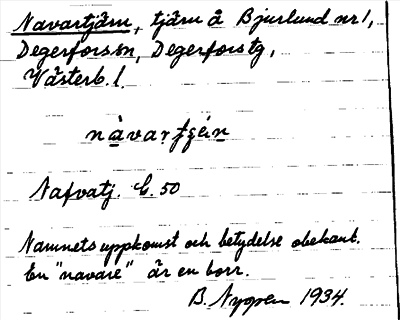 Navartjärn, tjärn å Bjurlund nr 1,
Degerforssn, Degerforstg,
Västerb. l.
nàvartjén
Nafvatj. G. 50
Namnets uppkomst och betydelse obekant.
En "navare" är en borr.
B. Nygren 1934.